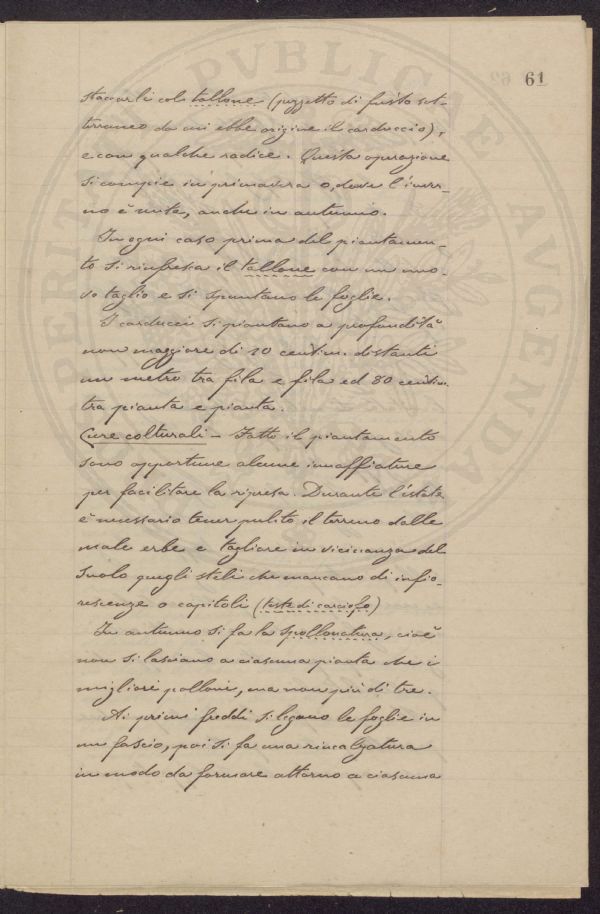 61
staccarli col tallone (pezzetto di fusto sot-
terraneo da cui ebbe origine il carduccio),
e con qualche radice. Questa operazione
si compie in primavera o, dove l'inver-
no è mite, anche in autunno.
In ogni caso prima del piantamen-
to si rinfresca il tallone con un nuo-
vo taglio e si spuntano le foglie.
I carducci si piantano a profondità
non maggiore di 10 centim. distanti
un metro tra fila e fila ed 80 centim.
tra pianta e pianta.
Cure colturali - Fatto il piantamento
sono opportune alcune innaffiature
per facilitare la ripresa. Durante l'estate
è necessario tener pulito il terreno dalle
male erbe e tagliare in vicinanza del
suolo quegli steli che mancano di infio-
rescenze o capitoli (teste di carciofo)
In autunno si fa la spollonatura, cioè
non si lasciano a ciascuna pianta che i
migliori polloni, ma non più di tre.
Ai primi freddi si legano le foglie in
un fascio, poi si fa una rincalzatura
in modo da formare attorno a ciascuna